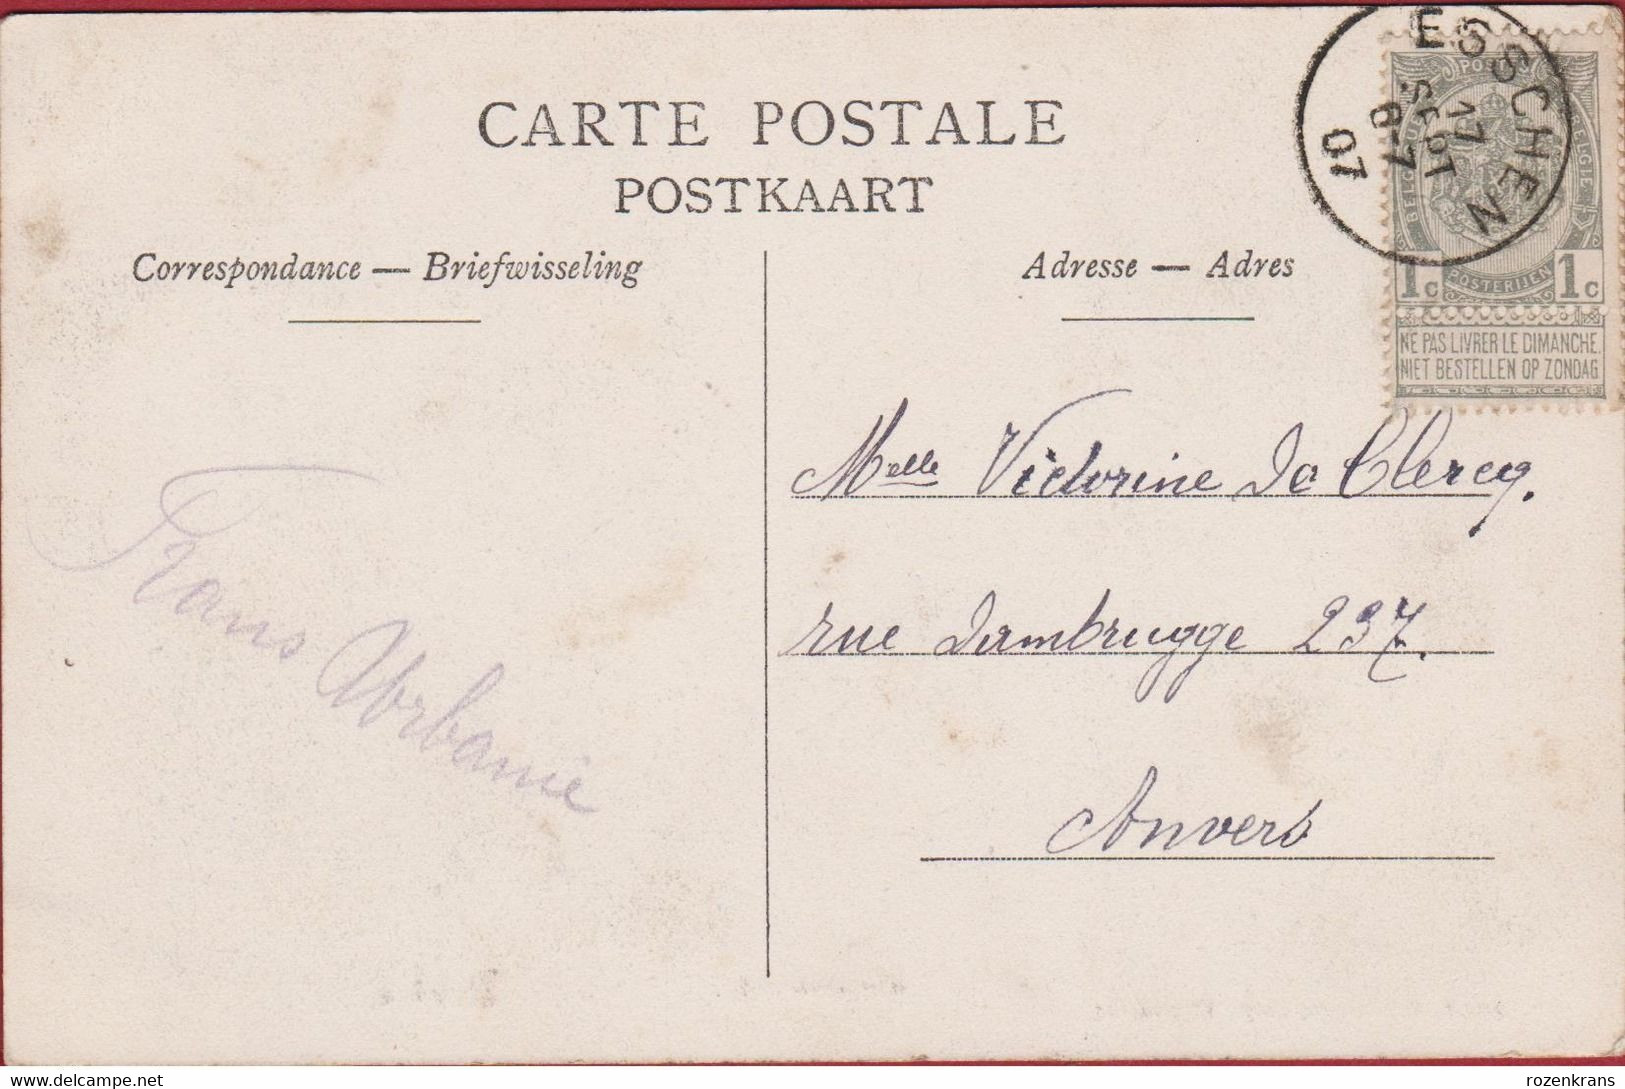 CARTE POSTALE
POSTKAART
Correspondance — Briefwisseling
Adresse — Adres
ESSCHEN
17
6-7
07
POSTES
BELGIQUE
BELGIE
POSTERIJEN
1c 1c
NE PAS LIVRER LE DIMANCHE.
NIET BESTELLEN OP ZONDAG
Melle Victorine De Clercq.
rue Dambrugge 237.
Anvers
Frans
rozenkrans